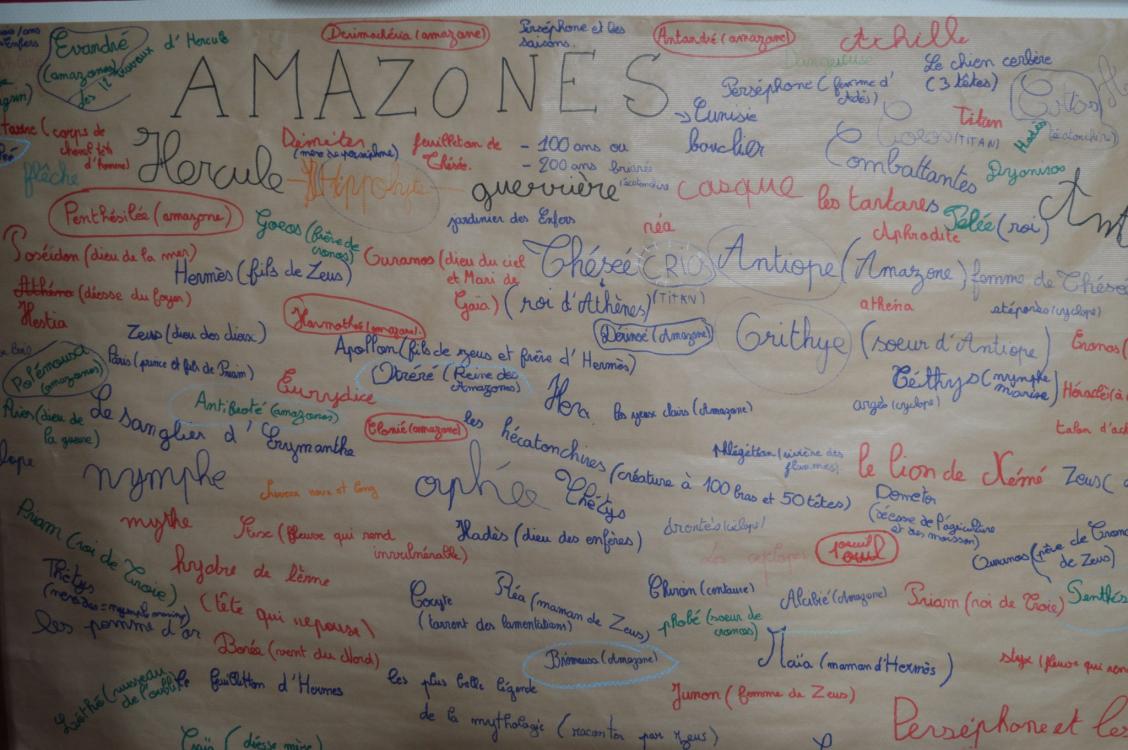 Evandré
(amazones)
des 12 travaux
d'Hercule
Derimachéia (amazone)
Perséphone et les
saisons.
Antandré (amazone)
Achille
Dangereuse
Le chien cerbère
(3 têtes)
AMAZONES
Perséphone (femme d'
Adès)
Tunisie
bouclier
Titan
Hadès
(corps de
Hercule
Démiter
feuilleton de
Thésé.
- 100 ans ou
- 200 ans
Hippolyte
guerrière
casque
Combattantes
(TITAN)
Dyonisos
flèche
les tartares
Pélée (roi)
Penthésilée (amazone)
Goeos (frère de
cronos)
jardinier des Enfers
réa
Aphrodite
Poséidon (dieu de la mer)
Hermès (fils de Zeus)
Ouranos (dieu du ciel
et Mari de
Gaïa)
Thésée
(roi d'Athènes)
CRIOS
(TITAN)
Antiope (Amazone) femme de Thésée
Athéna (déesse du foyer)
Hestia
Zeus (dieu des dieux)
Harmothé (amazone).
Dérinoé (Amazone)
athéna
stéropès (cyclope)
Orithye (soeur d'Antiope)
Polémousa
(amazones)
Pâris (prince et fils de Priam)
Apollon (fils de zeus et frère d'Hermès)
Eurydice
Otréré (Reine des
Amazones)
Héra
les yeux clairs (Amazone)
Téthys (nymphe
marine)
Argès (cyclope)
(dieu de
la guerre)
Antibroté (amazones)
Le sanglier d'Erymanthe
Clonié (amazone)
les hécatonchires (créature à 100 bras et 50 têtes)
Phlégéton (rivière des
flammes)
le lion de Némé
Zeus (
nymphe
cheveux noux et long
orphée
Thétys
Demeter
(déesse de l'agriculture
et des moisson)
Priam (roi de Troie)
mythe
Stix (fleuve qui rend
invulnérable)
Hadès (dieu des enfères)
Les cyclopes
Ouranos (père de Crono
de Zeus)
Thétys
hydre de lerne
(tête qui repousse)
Cocyte
(torrent des lamentations)
Réa (maman de Zeus)
Chiron (centaure)
phobé (soeur de
cronos)
Alcibié (Amazone)
Priam (roi de Troie)
les pomme d'or
Borée (vent du Nord)
Brémusa (Amazone)
Maïa (maman d'Hermès)
styx (fleuve qui
Léthé (ruisseau
de l'oubli)
le feuilleton d'Hermes
les plus belle légende
de la mythologie (racontor par zeus)
Junon (femme de Zeus)
Perséphone et les
Gaïa (déesse mère)